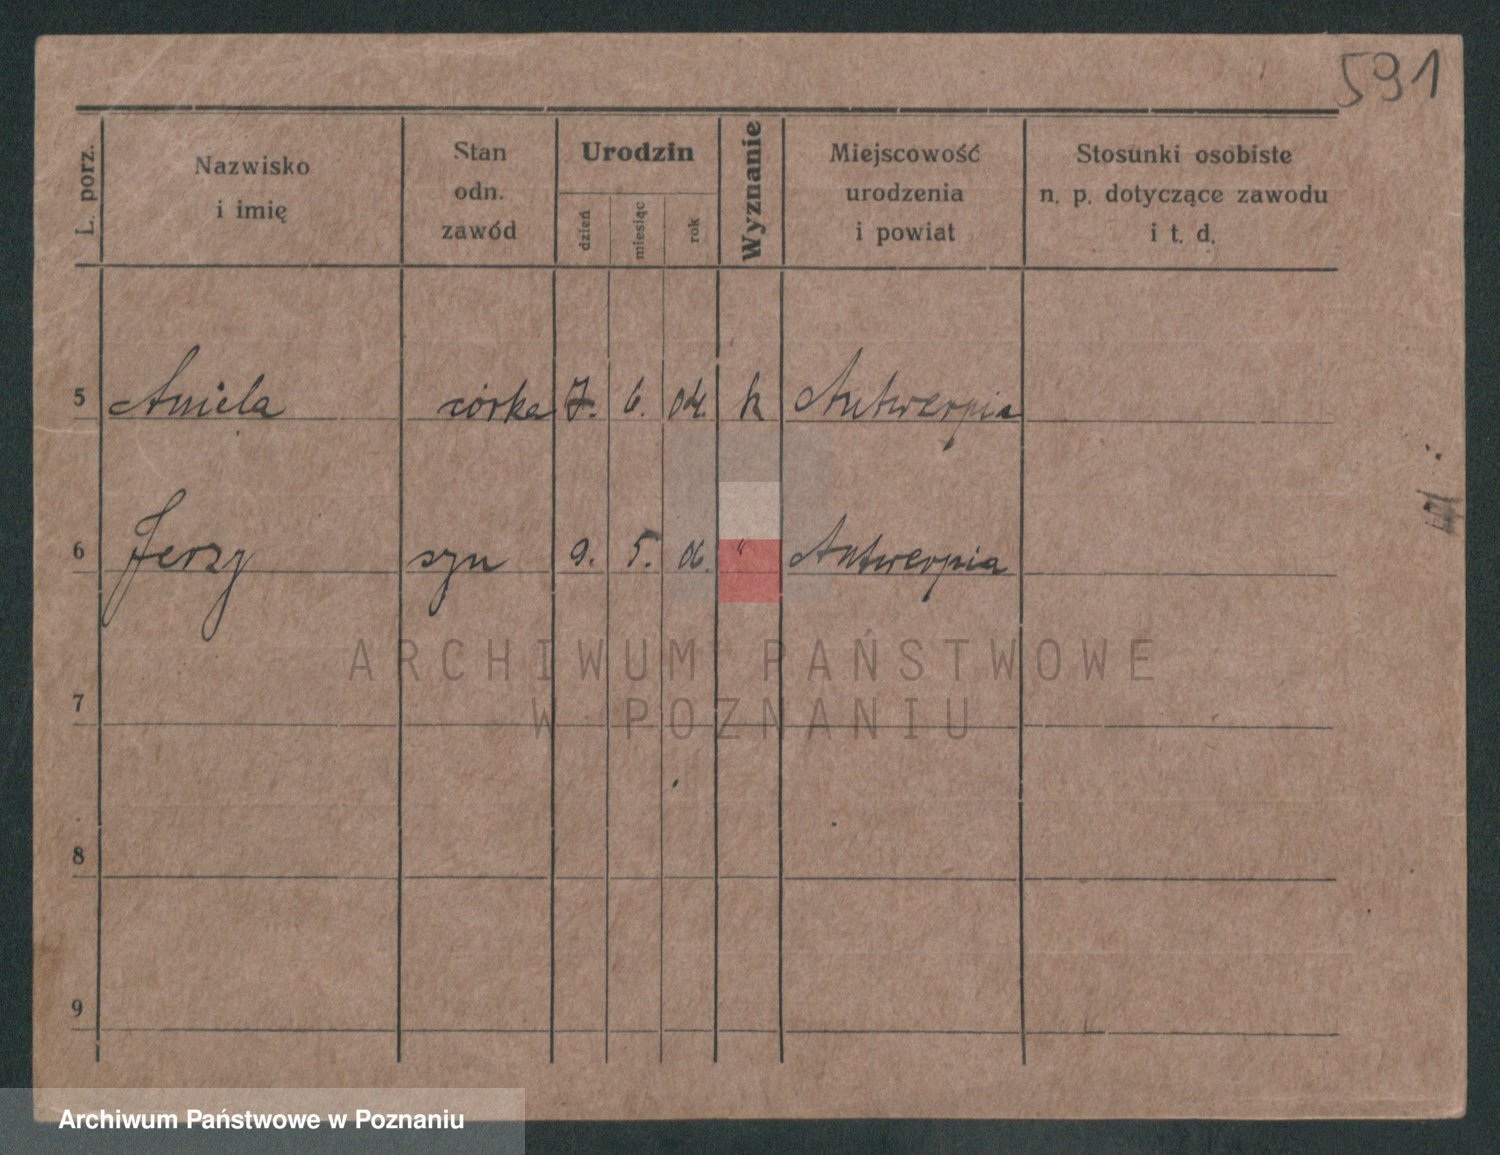 591
L. porz.
Nazwisko
i imię
Stan
odn.
zawód
Urodzin
dzień
miesiąc
rok
Wyznanie
Miejscowość
urodzenia
i powiat
Stosunki osobiste
n. p. dotyczące zawodu
i t. d.
5 Aniela córka 7. 6. 04. k Antwerpia
6 Jerzy syn 9. 5. 06. " Antwerpia
ARCHIWUM PAŃSTWOWE
W POZNANIU
7
8
9
Archiwum Państwowe w Poznaniu